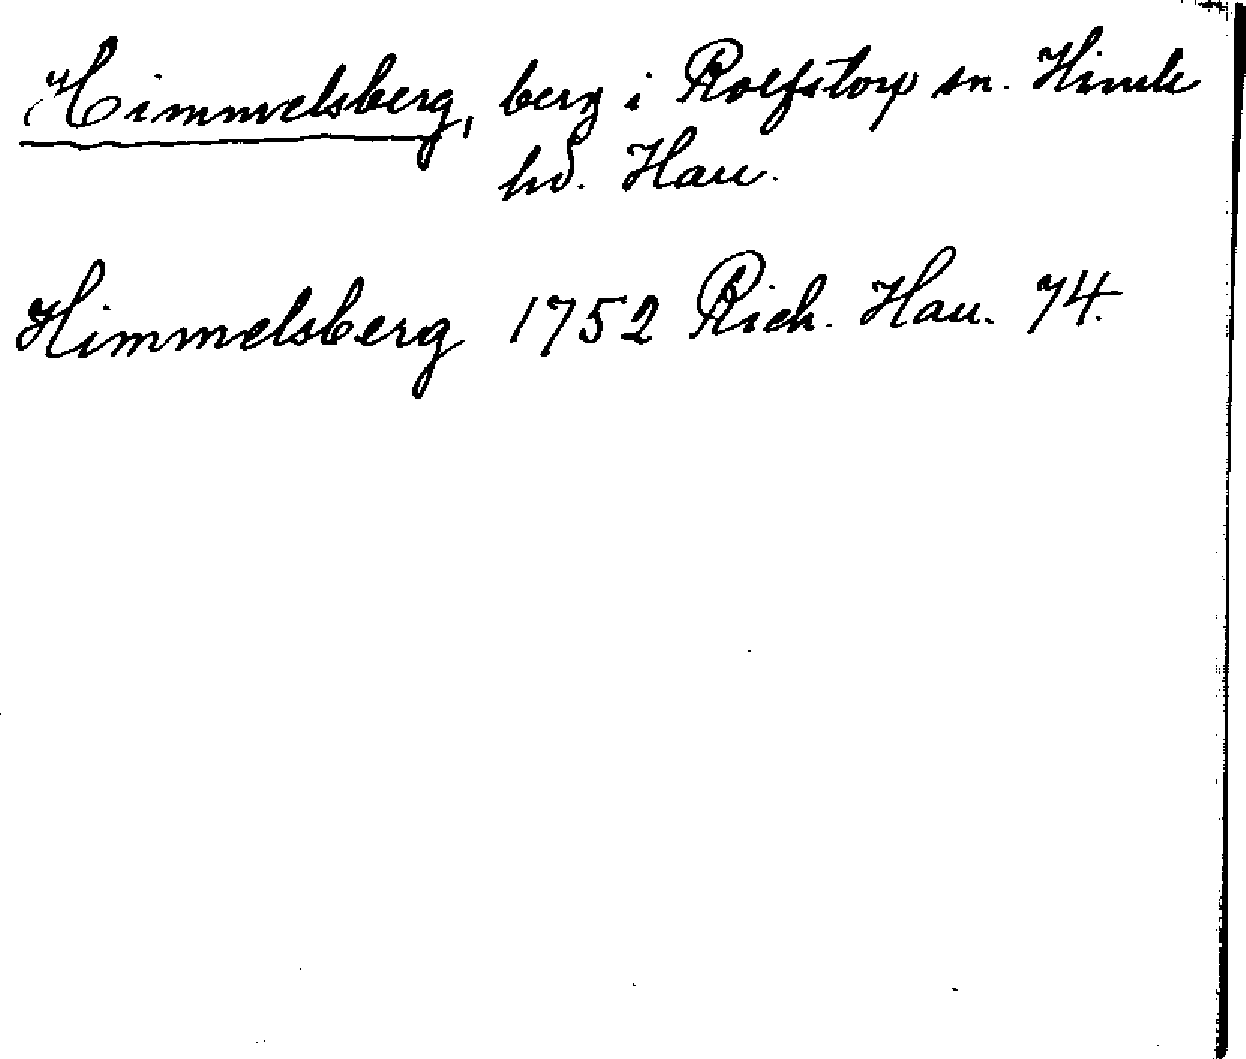 Himmelsberg, berg i Rolfstorp sn. Himle
hd. Hall.
Himmelsberg 1752 Rich. Hall. 74.